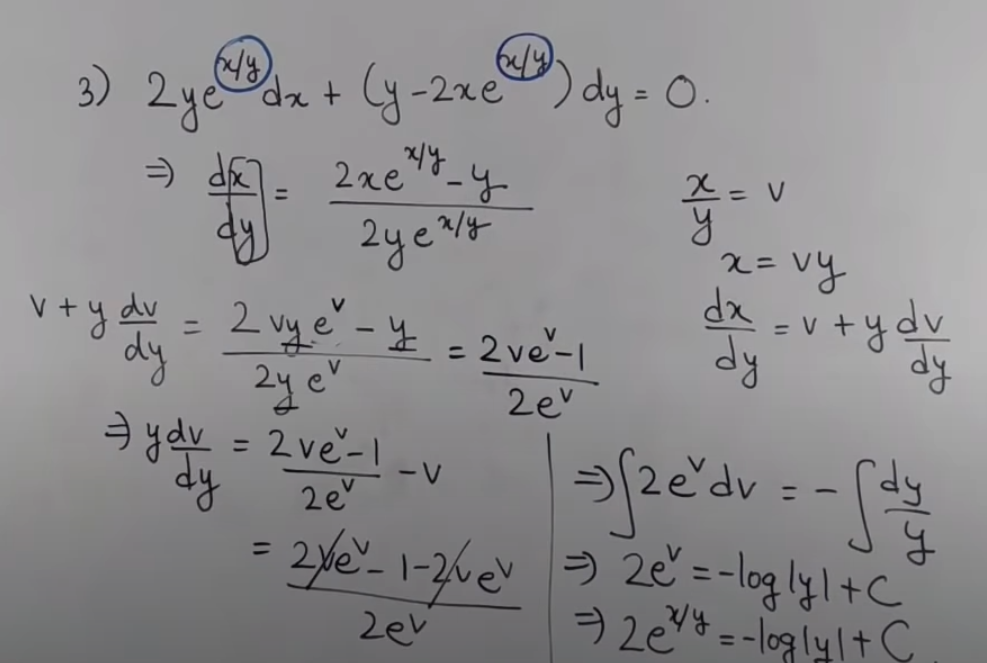 3) 2ye^{x/y} dx + (y - 2xe^{x/y}) dy = 0.
⇒ dx/dy = (2xe^{x/y} - y)/(2ye^{x/y})
x/y = v
x = vy
dx/dy = v + y dv/dy
v + y dv/dy = (2vye^v - y)/(2ye^v) = (2ve^v - 1)/(2e^v)
⇒ y dv/dy = (2ve^v - 1)/(2e^v) - v
= (2ve^v - 1 - 2ve^v)/(2e^v)
⇒ ∫2e^v dv = -∫dy/y
⇒ 2e^v = -log|y| + C
⇒ 2e^{x/y} = -log|y| + C